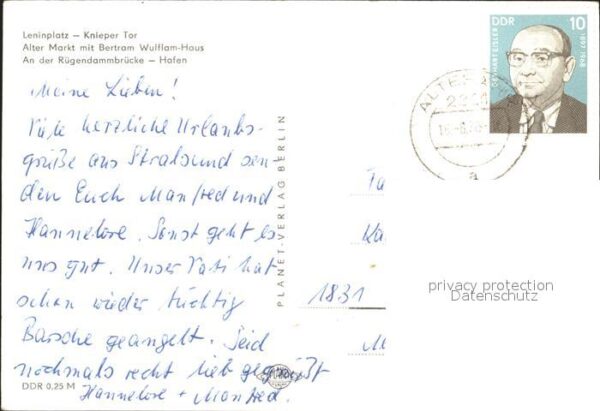 Leninplatz – Knieper Tor
Alter Markt mit Bertram Wulflam-Haus
An der Rügendammbrücke – Hafen
Meine Lieben!
Viele herzliche Urlaubs-
grüße aus Stralsund sen
den Euch Manfred und
Hannelore. Sonst geht es
uns gut. Unser Vati hat
schon wieder tüchtig
Barsche geangelt. Seid
nochmals recht lieb gegrüßt
Hannelore + Manfred.
DDR 0,25 M
PLANET-VERLAG BERLIN
DDR 10
GERHART EISLER
1897-1968
a
Fa
Ka
1831
M
privacy protection
Datenschutz